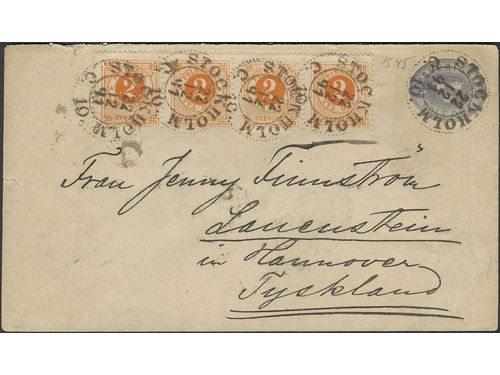 1545
2 2 2 2
STOCKHOLM STOCKHOLM STOCKHOLM STOCKHOLM STOCKHOLM
Frau Jenny Finnström
Lauenstein
in Hannover
Tyskland